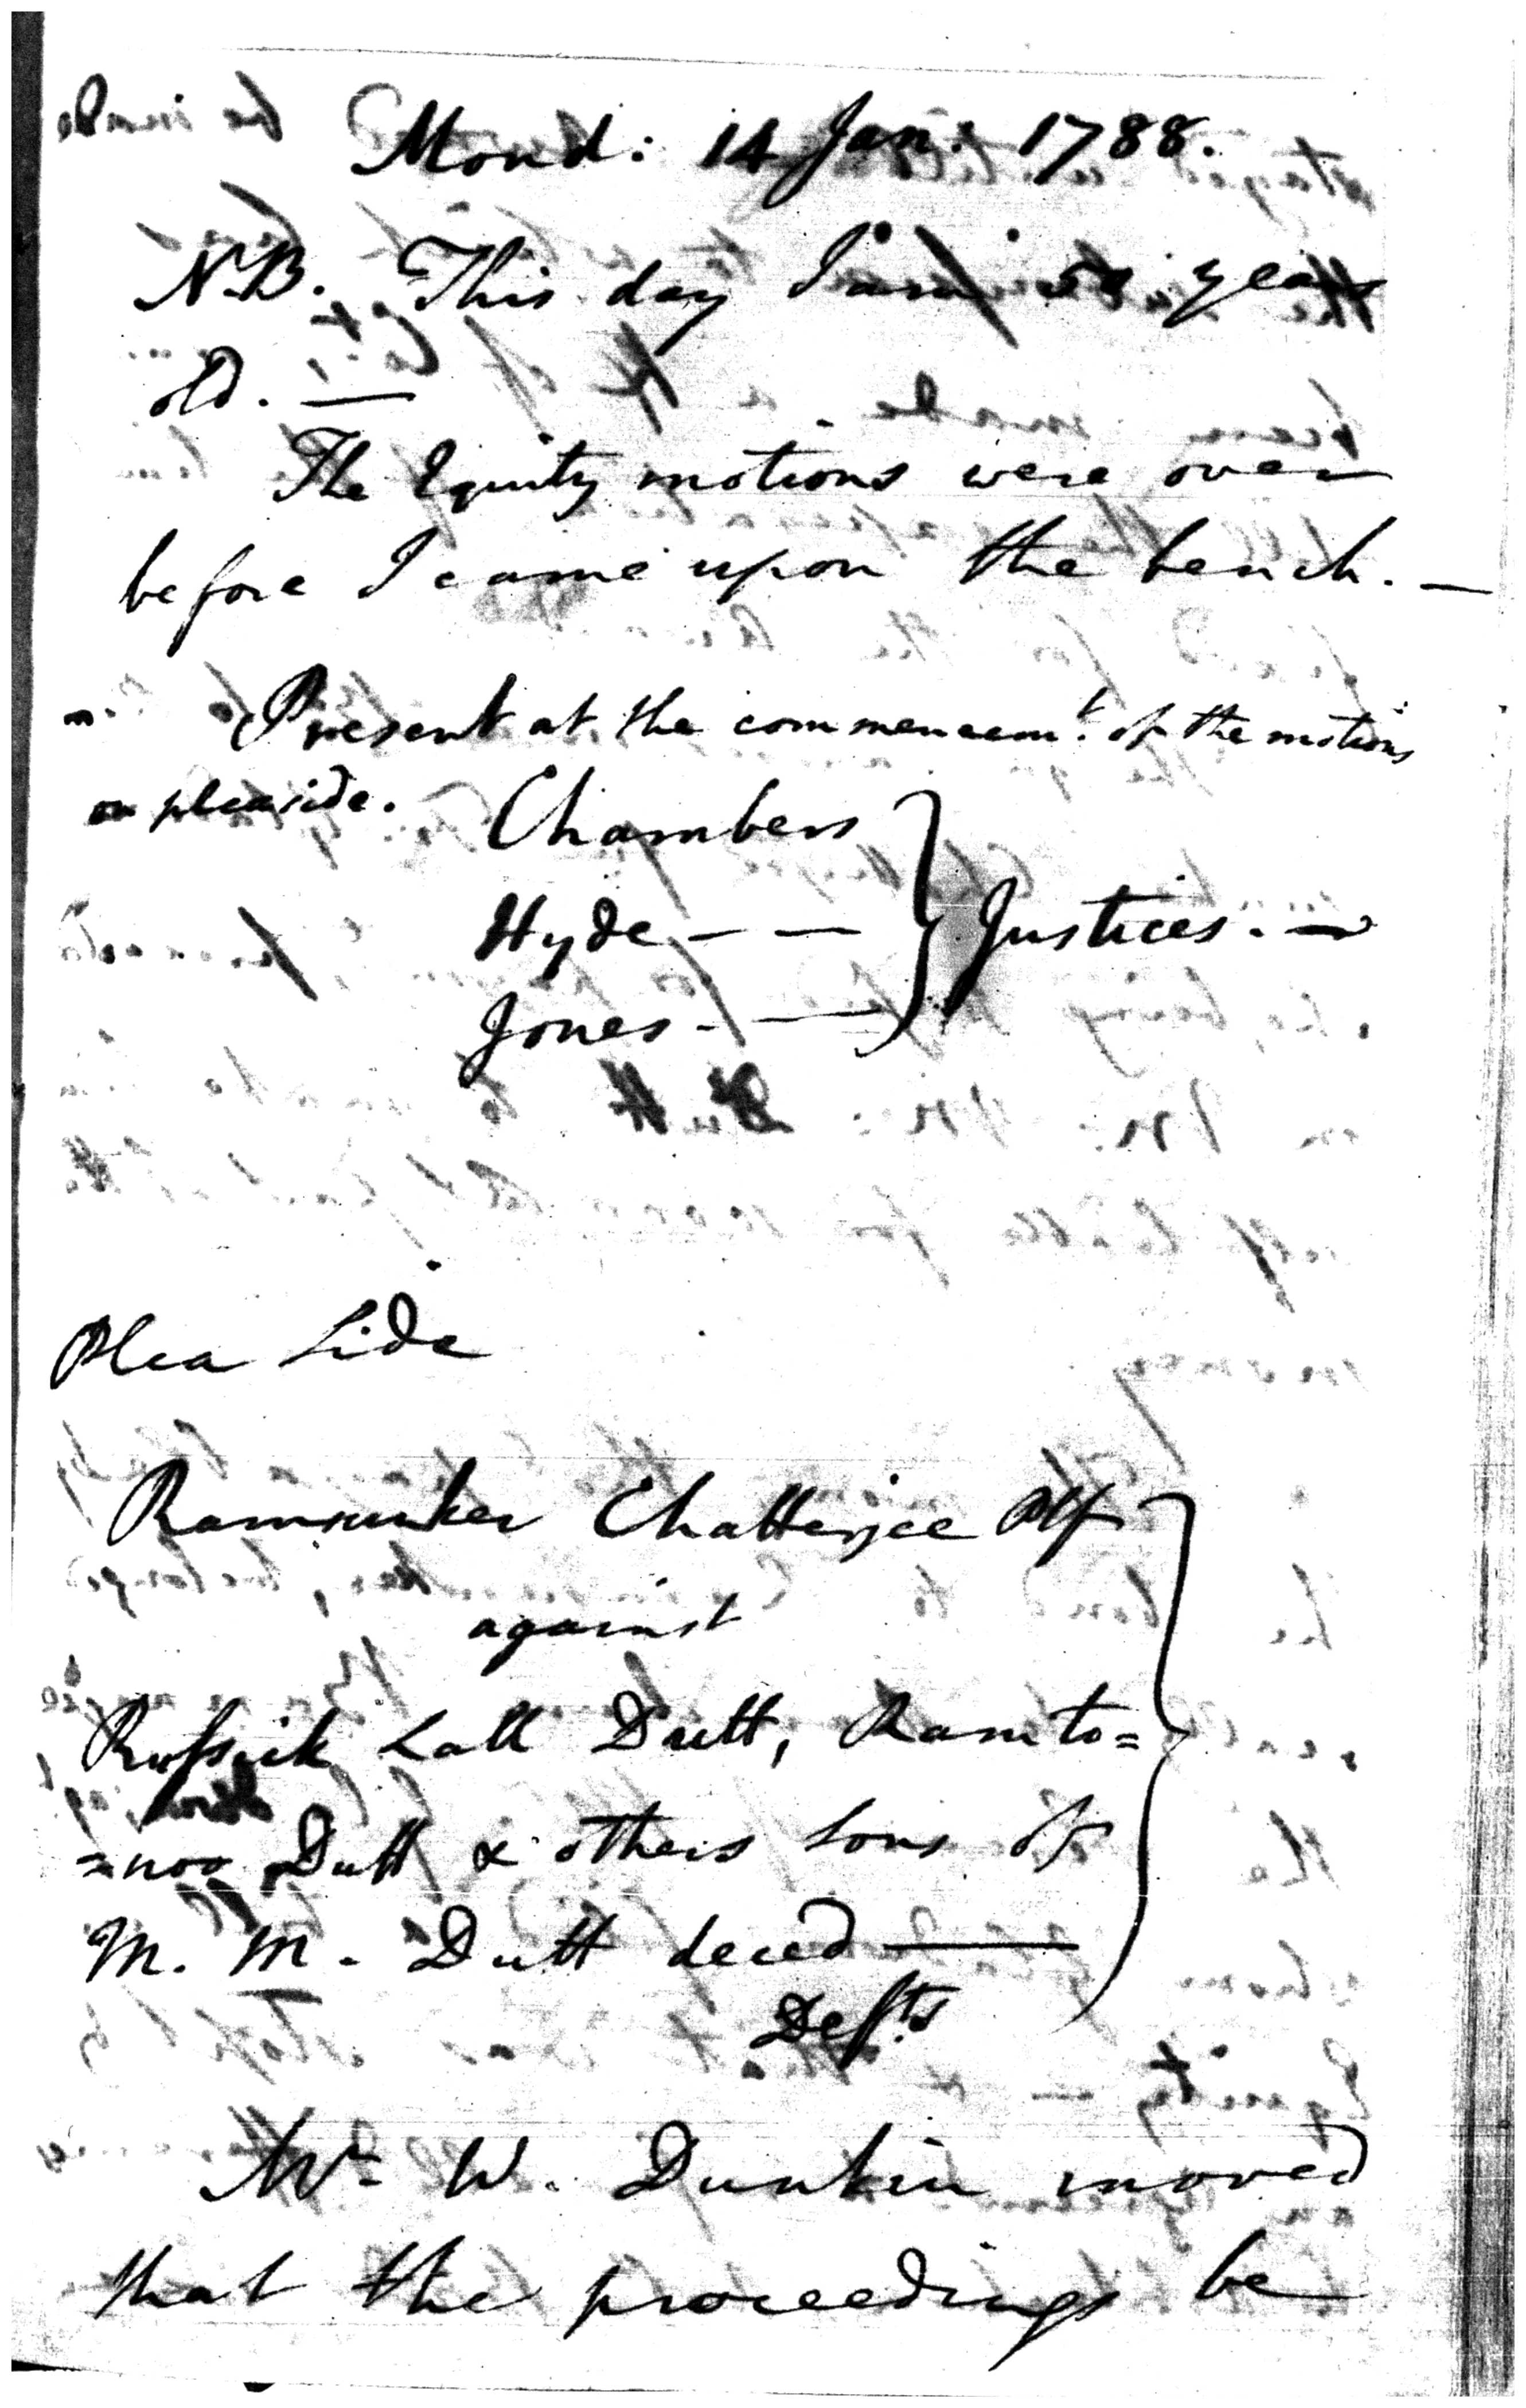 Mond: 14 Jan: 1788.
N.B. This day I am years
old. —
The Equity motions were over
before I came upon the bench. —
Present at the commencemt. of the motions
on pleaside.
Chambers
Hyde — —
Jones. — } Justices. —
Plea Side
Ramsunker Chatterjee Plf
against
Russick Lall Dutt, Ramto=
=noo Dutt & others sons of
M. M. Dutt deced —
Defts
Mr. W. Dunkin moved
that the proceedings be